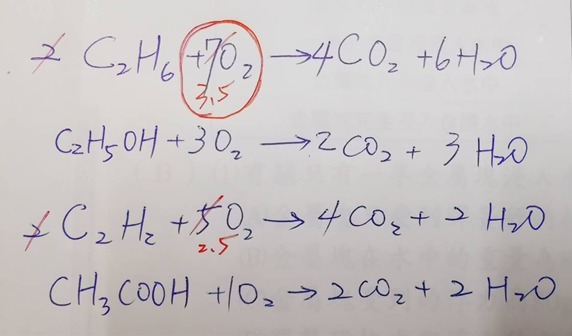 2 C₂H₆ + 7O₂ → 4CO₂ + 6H₂O
3.5
C₂H₅OH + 3O₂ → 2CO₂ + 3H₂O
2 C₂H₂ + 5O₂ → 4CO₂ + 2H₂O
2.5
CH₃COOH + 1O₂ → 2CO₂ + 2H₂O